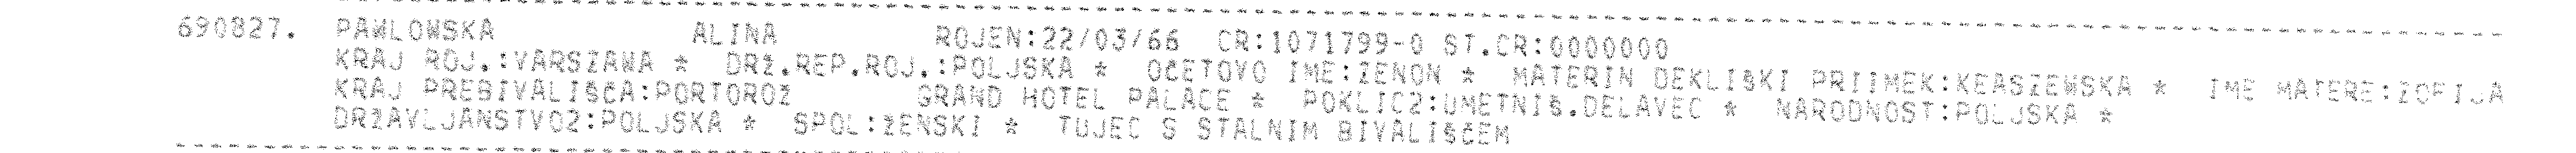 690827. PAWLOWSKA ALINA ROJEN:22/03/66 CR:1071799-0 ST.CR:0000000
KRAJ ROJ.:VARSZAWA * DRŽ.REP.ROJ.:POLJSKA * OČETOVO IME:ZENON * MATERIN DEKLIŠKI PRIIMEK:KEASZEWSKA * IME MATERE:ZOFIJA
KRAJ PREBIVALIŠČA:PORTOROŽ GRAND HOTEL PALACE * POKLIC2:UMETNIŠ.DELAVEC * NARODNOST:POLJSKA *
DRŽAVLJANSTVO2:POLJSKA * SPOL:ŽENSKI * TUJEC S STALNIM BIVALIŠČEM